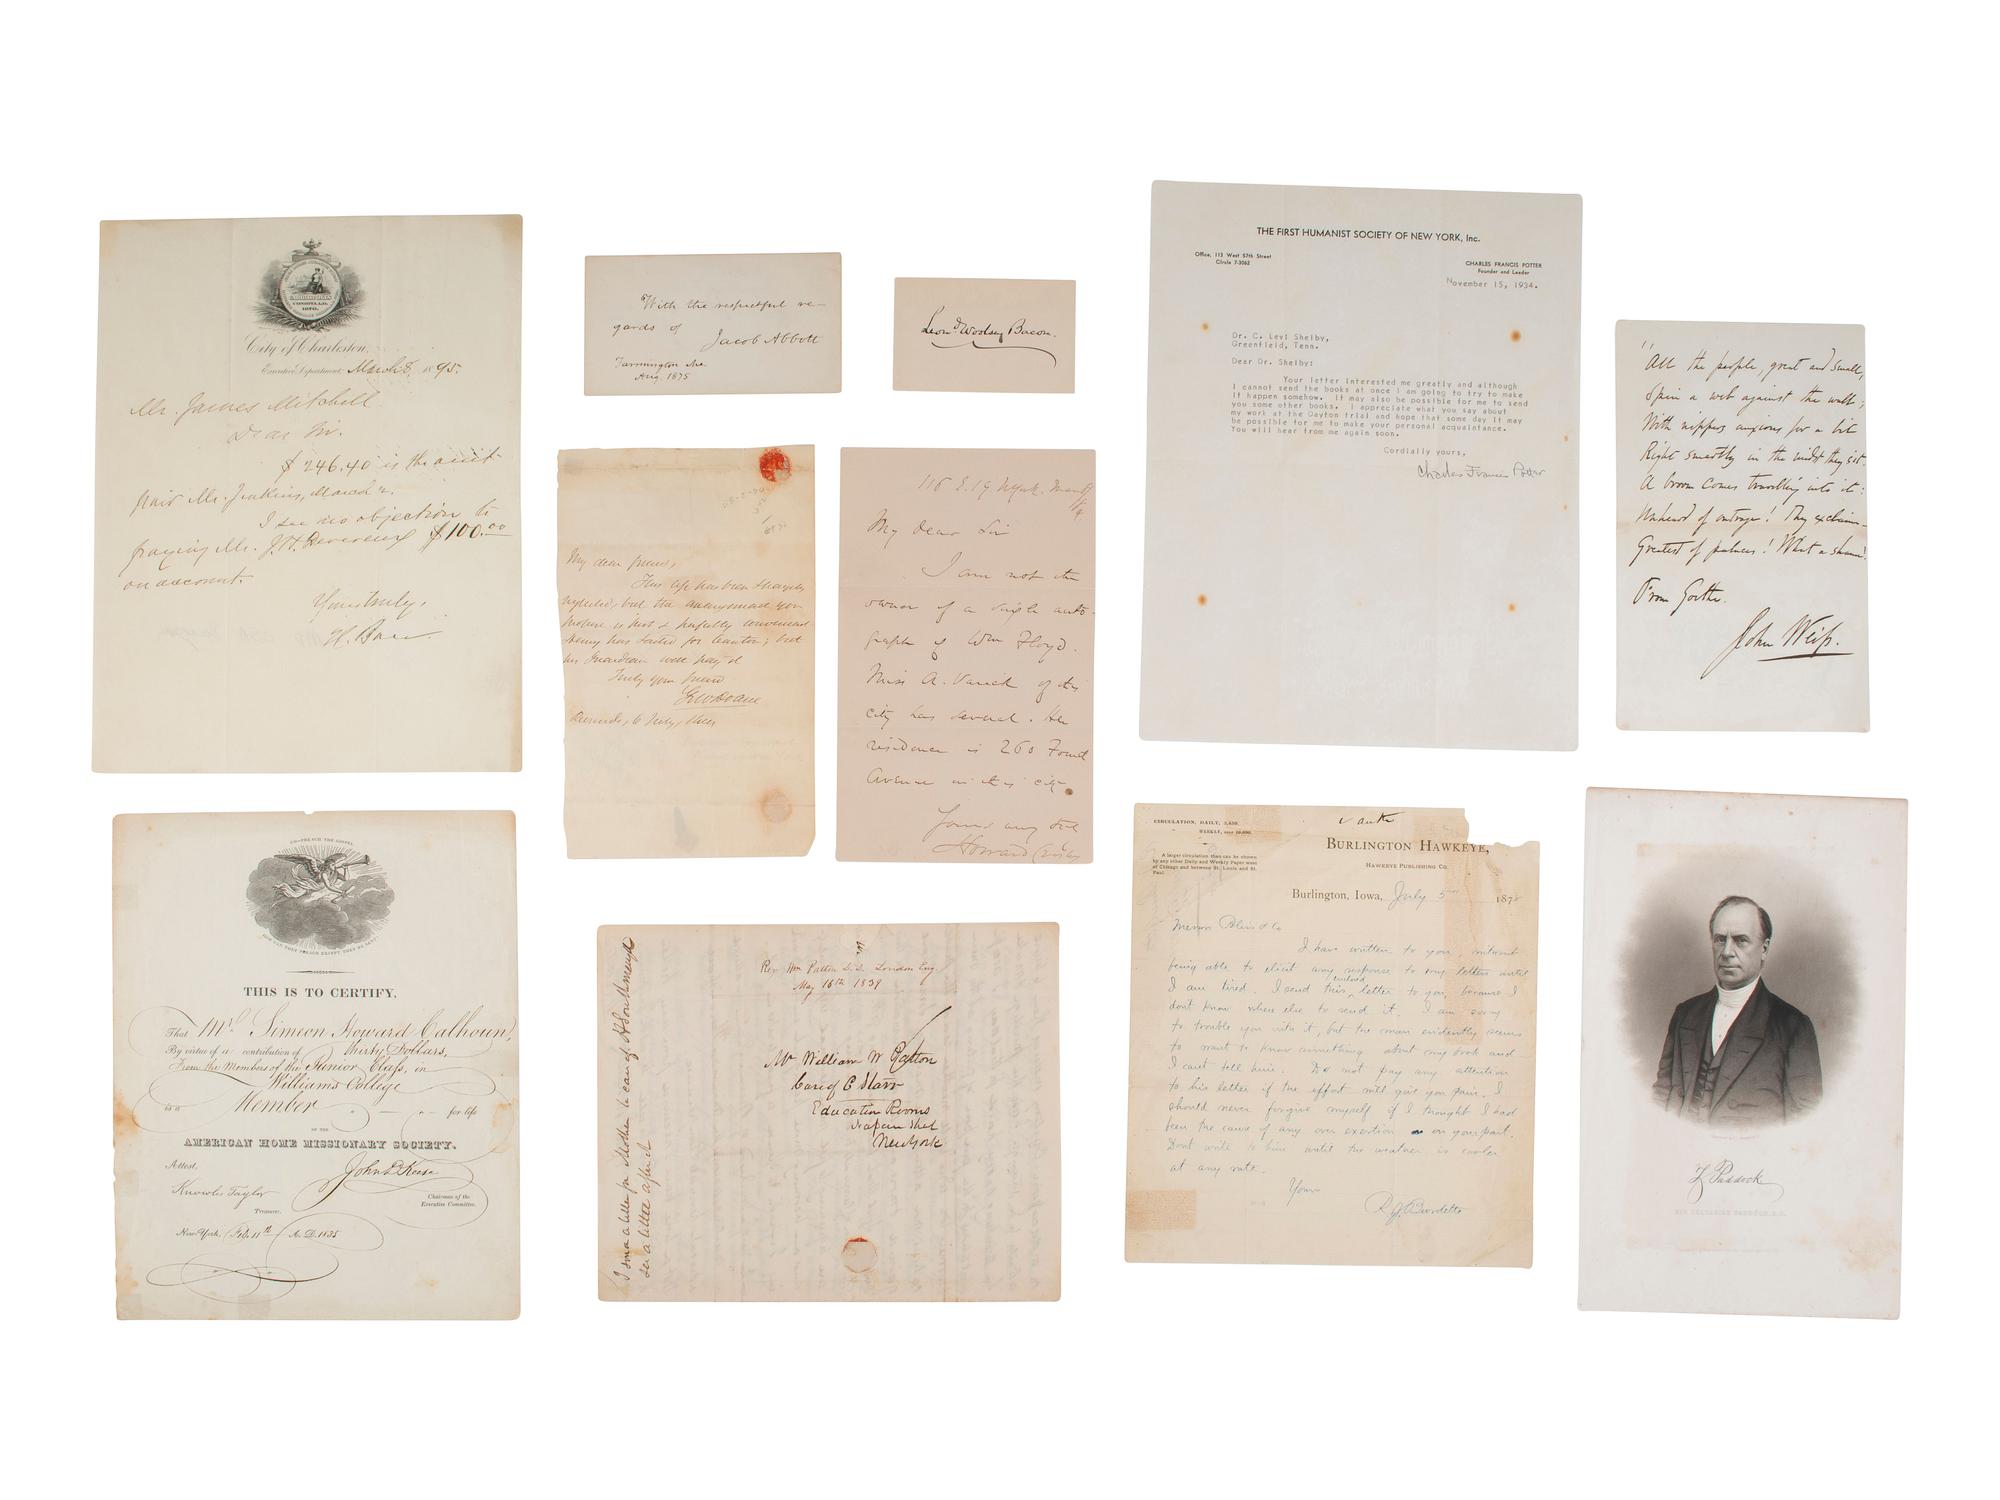 City of Charleston,
Executive Department: March 8, 1895.
Mr. James Mitchell
Dear Sir.
$246.40 is the amt.
paid Mr. Jenkins, March 2.
I see no objection to
paying Mr. J. H. Devereux $100.00
on account.
Yours truly,
With the respectful re-
gards of
Jacob Abbott
Farmington Me.
Aug. 1875
Leond. Woolsey Bacon.
THE FIRST HUMANIST SOCIETY OF NEW YORK, Inc.
Office, 113 West 57th Street
Circle 7-3062
CHARLES FRANCIS POTTER
Founder and Leader
November 15, 1934.
Dr. C. Levi Shelby,
Greenfield, Tenn.
Dear Dr. Shelby:
Your letter interested me greatly and although
I cannot send the books at once I am going to try to make
it happen somehow. It may also be possible for me to send
you some other books. I appreciate what you say about
my work at the Dayton trial and hope that some day it may
be possible for me to make your personal acquaintance.
You will hear from me again soon.
Cordially yours,
Charles Francis Potter
"All the people, great and small,
Spin a web against the wall;
With nippers anxious for a bit
Right smartly in the midst they sit.
A broom comes travelling into it:
Unheard of outrage! They exclaim—
Greatest of palaces! What a shame!
From Goethe.
John Weiss.
My dear friend,
This life has been strangely
neglected, but the
is just & perfectly convenient.
Henry has sailed for Canton; but
his Guardian will pay it
Truly your friend
GWDoane
6 July,
116 E. 19 N York.
My dear Sir
I am not the
owner of a single auto-
graph of Wm Floyd.
Miss A. Varick of this
city has several. Her
residence is 260 Fourth
Avenue in this city
Yours very truly
Howard Crosby
GO—PREACH THE GOSPEL
HOW CAN THEY PREACH EXCEPT THEY BE SENT
THIS IS TO CERTIFY,
That Mr. Simeon Howard Calhoun,
By virtue of a contribution of Thirty Dollars,
From the Members of the Junior Class, in
Williams College
is a Member for life
OF THE
AMERICAN HOME MISSIONARY SOCIETY.
Attest,
Knowles Taylor
Treasurer.
Chairman of the
Executive Committee.
New York, Feb. 11th A.D. 1835
Rev. Wm Patton D.D. London Eng.
May 16th 1839
Mr William W Patton
Care of C Starr
Education Rooms
New York
I send a letter for Mother to care of
CIRCULATION, DAILY, 3,450.
WEEKLY,
A larger circulation than can be shown
by any other Daily and Weekly Paper west
of Chicago and between St. Louis and St.
Paul.
BURLINGTON HAWKEYE,
HAWKEYE PUBLISHING CO.
Burlington, Iowa, July 5 187
I have written to you, without
being able to elicit any response to my letters until
I am tired. I send this enclosed letter to you, because I
dont know where else to send it. I am sorry
to trouble you with it, but the man evidently seems
to want to know something about my book and
I cant tell him. Do not pay any attention
to his letter if the effort will give you pain. I
should never forgive myself if I thought I had
been the cause of any over exertion on your part.
Dont write to him until the weather is cooler
at any rate.
Yours
R. J. Burdette
Z Paddock
REV. ZECHARIAH PADDOCK, D.D.